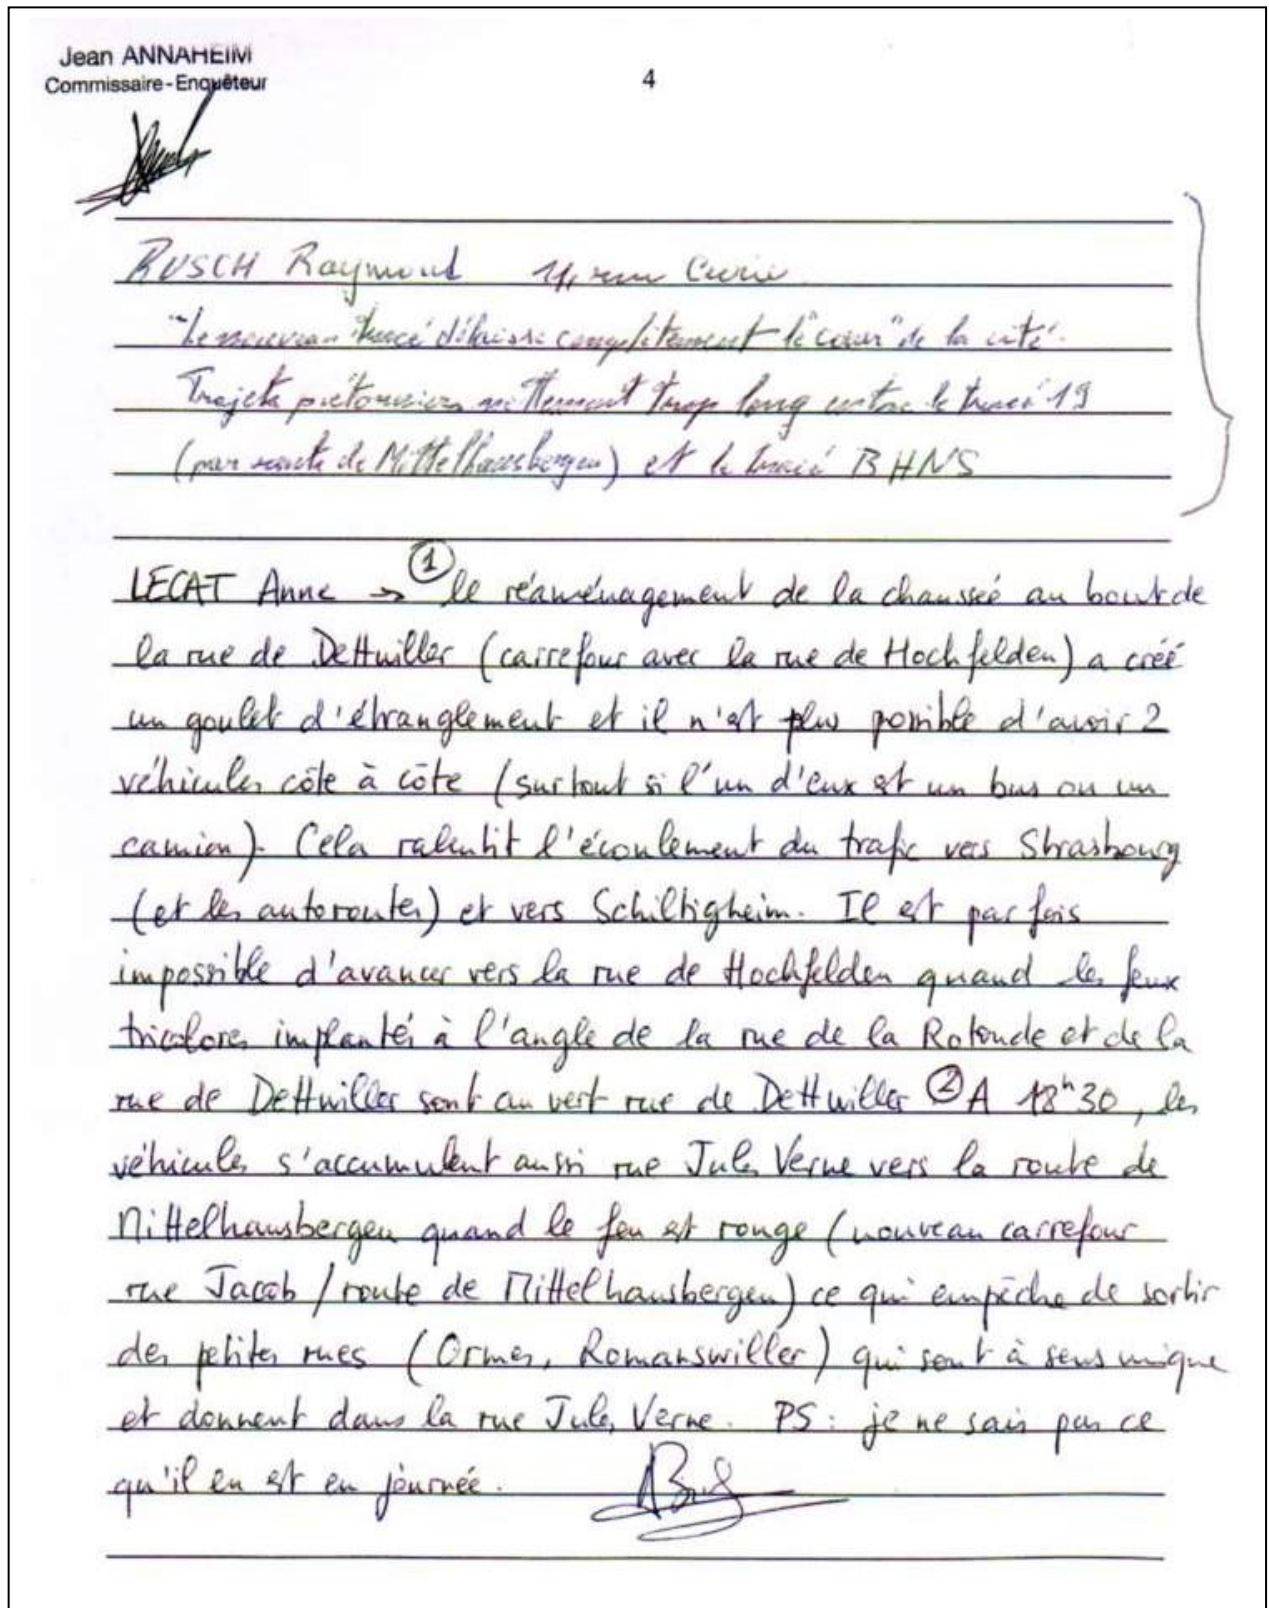 Jean ANNAHEIM
Commissaire-Enquêteur
4
RUSCH Raymond 11, rue Curie
"Le nouveau tracé délaisse complètement le "cœur" de la cité.
Trajets piétonniers nettement trop long entre le tracé 19
(par route de Mittelhausbergen) et le tracé BHNS
LECAT Anne → ① le réaménagement de la chaussée au bout de
la rue de Dettwiller (carrefour avec la rue de Hochfelden) a créé
un goulet d'étranglement et il n'est plus possible d'avoir 2
véhicules côte à côte (surtout si l'un d'eux est un bus ou un
camion). Cela ralentit l'écoulement du trafic vers Strasbourg
(et les autoroutes) et vers Schiltigheim. Il est parfois
impossible d'avancer vers la rue de Hochfelden quand les feux
tricolores implantés à l'angle de la rue de la Rotonde et de la
rue de Dettwiller sont au vert rue de Dettwiller ② A 18h30, les
véhicules s'accumulent aussi rue Jules Verne vers la route de
Mittelhausbergen quand le feu est rouge (nouveau carrefour
rue Jacob / route de Mittelhausbergen) ce qui empêche de sortir
des petites rues (Ormes, Romanswiller) qui sont à sens unique
et donnent dans la rue Jules Verne. PS : je ne sais pas ce
qu'il en est en journée.